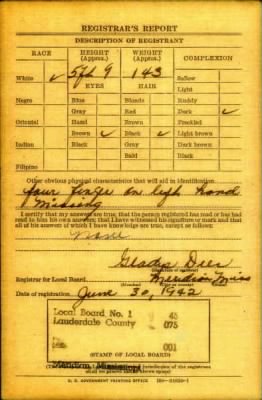 REGISTRAR'S REPORT
DESCRIPTION OF REGISTRANT
RACE HEIGHT (Approx.) WEIGHT (Approx.) COMPLEXION
White ✓ 5ft 9 143 Sallow
EYES HAIR Light
Negro Blue Blonde Ruddy
Gray Red Dark ✓
Oriental Hazel Brown Freckled
Brown ✓ Black ✓ Light brown
Indian Black Gray Dark brown
Bald Black
Filipino
Other obvious physical characteristics that will aid in identification
four finger on left hand
Missing
I certify that my answers are true; that the person registered has read or has had
read to him his own answers; that I have witnessed his signature or mark and that
all of his answers of which I have knowledge are true, except as follows:
None
Gladys
Registrar for Local Board Meridian Miss
Date of registration June 30, 1942
Local Board No. 1 45
Lauderdale County 075
001
Meridian, Mississippi
(STAMP OF LOCAL BOARD)
U. S. GOVERNMENT PRINTING OFFICE